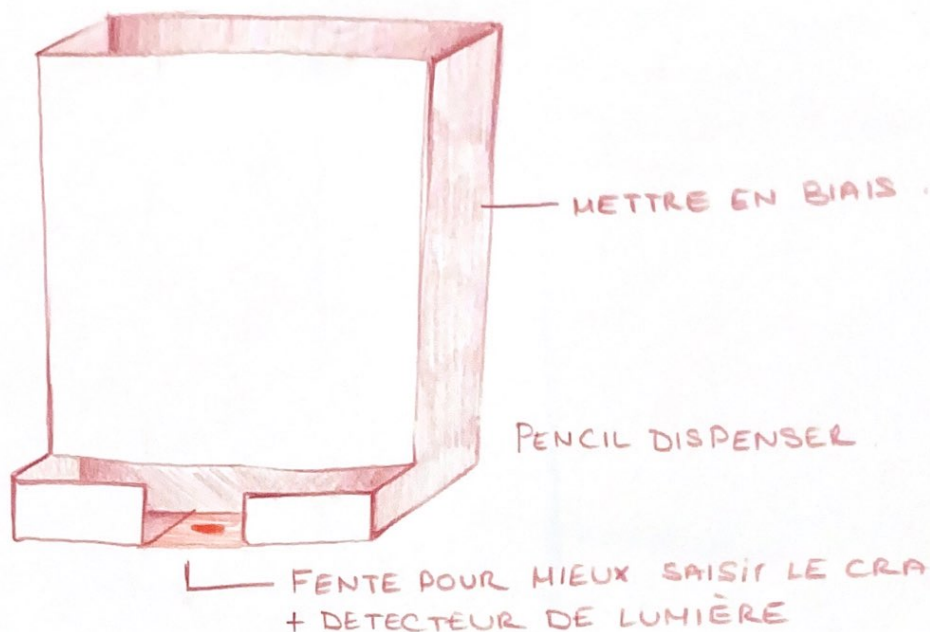 METTRE EN BIAIS
PENCIL DISPENSER
FENTE POUR MIEUX SAISIR LE CRA
+ DETECTEUR DE LUMIÈRE